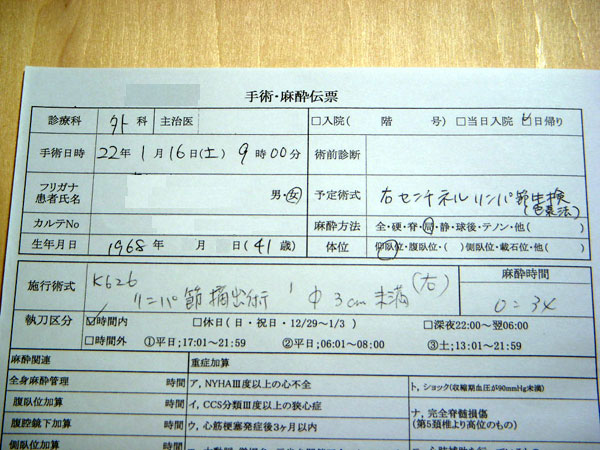 手術・麻酔伝票
診療科 外科 主治医 □入院( 階 号) □当日入院 ☑日帰り
手術日時 22年 1月 16日(土) 9時 00分 術前診断
フリガナ
患者氏名 男・女 予定術式 右センチネルリンパ節生検
(色素法)
カルテNo 麻酔方法 全・硬・脊・局・静・球後・テノン・他( )
生年月日 1968年 月 日(41歳) 体位 仰臥位・腹臥位・( )側臥位・載石位・他( )
施行術式 K626 麻酔時間
リンパ節摘出術 ' φ3cm未満 (右)
執刀区分 ☑時間内 □休日(日・祝日・12/29~1/3) □深夜22:00~翌06:00
□時間外 ①平日;17:01~21:59 ②平日;06:01~08:00 ③土;13:01~21:59
麻酔関連 重症加算
全身麻酔管理 時間 ア,NYHAⅢ度以上の心不全 ト,ショック(収縮期血圧が90mmHg未満)
腹臥位加算 時間 イ,CCS分類Ⅲ度以上の狭心症
腹腔鏡下加算 時間 ウ,心筋梗塞発症後3ヶ月以内 ナ,完全脊髄損傷
(第5頚椎より高位のもの)
側臥位加算 時間